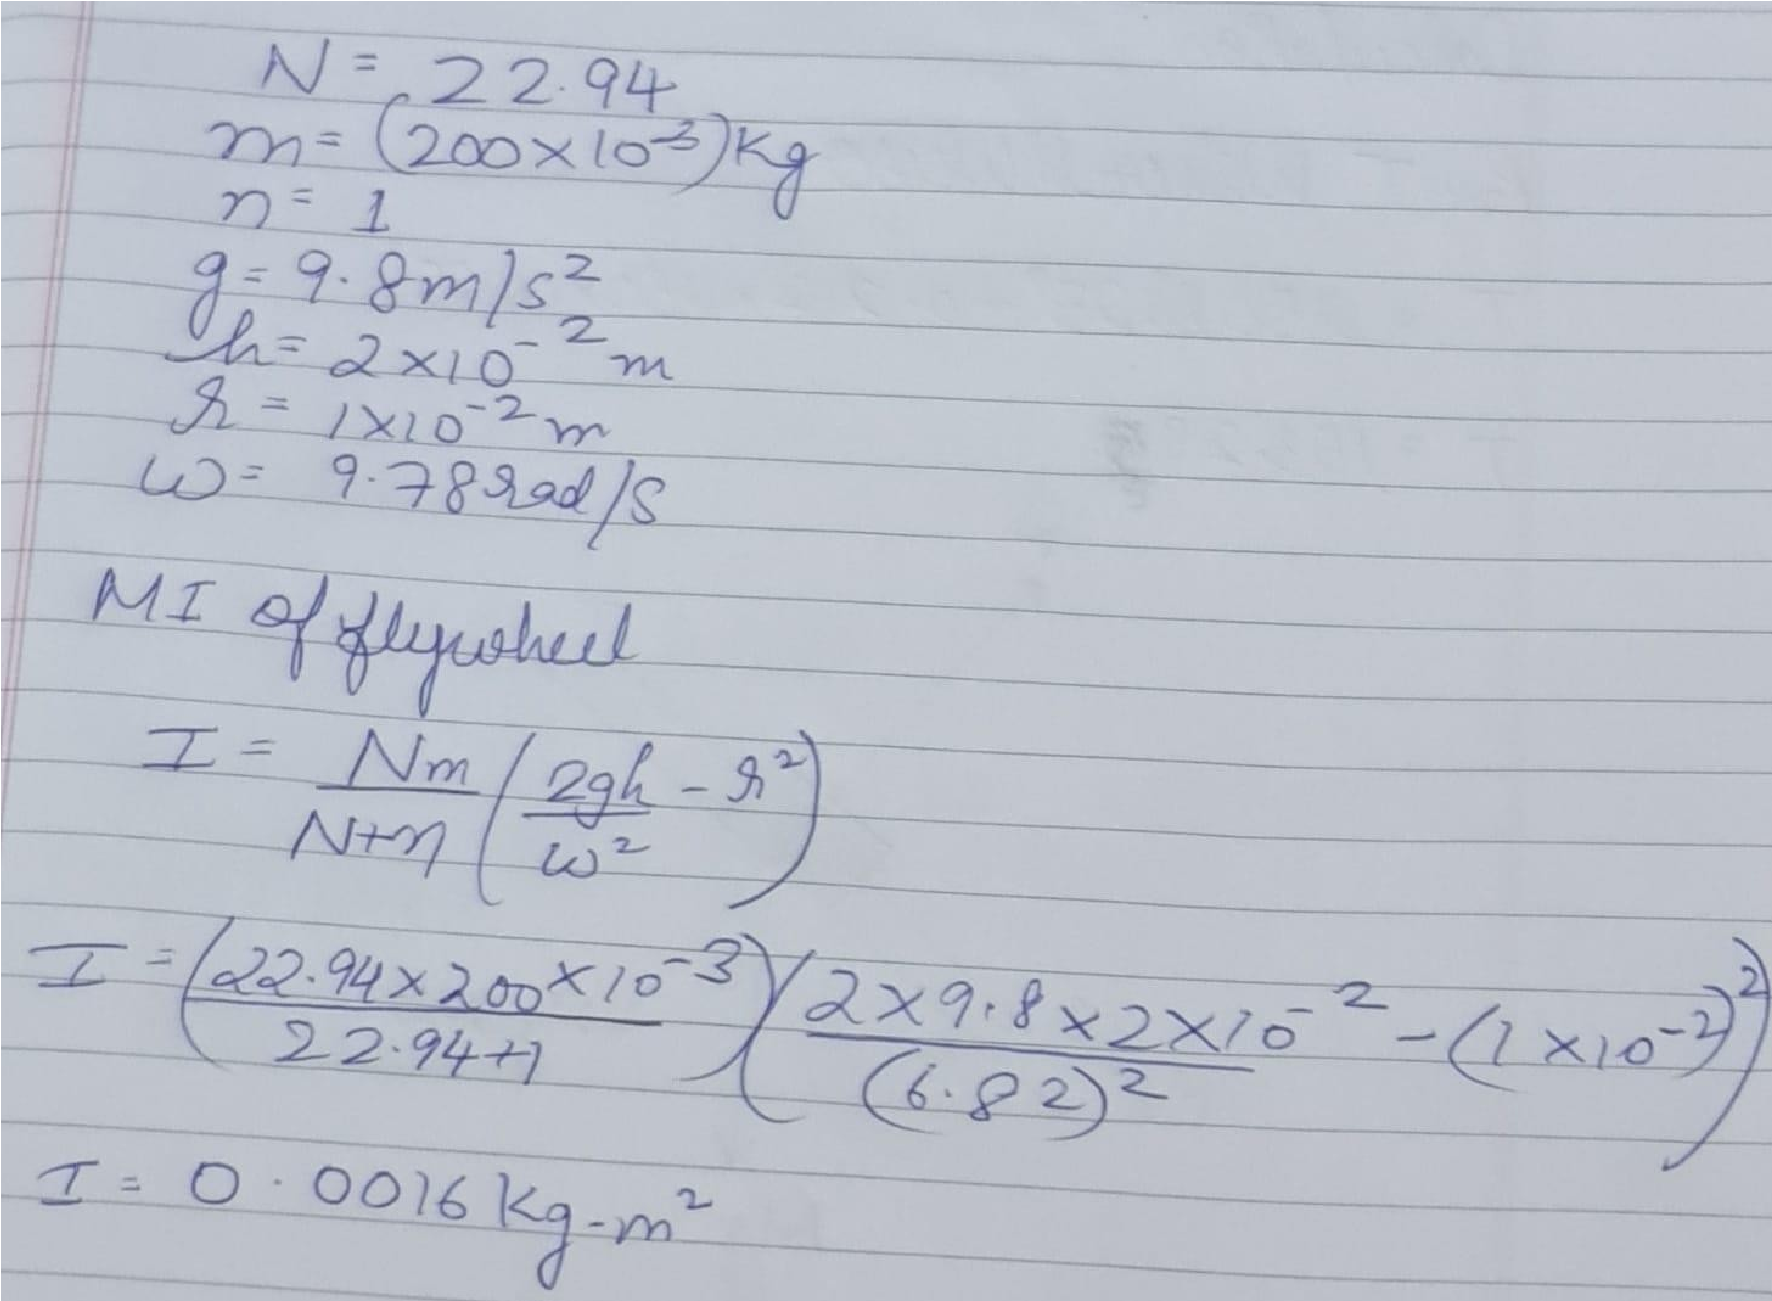 N = 22.94
m = (200×10⁻³)Kg
n = 1
g = 9.8m/s²
h = 2×10⁻²m
r = 1×10⁻²m
ω = 9.78rad/s
MI of flywheel
I = Nm/N+n (2gh/ω² - r²)
I = (22.94×200×10⁻³/22.94+1)(2×9.8×2×10⁻²/(6.82)² - (1×10⁻²)²)
I = 0.0016 Kg-m²